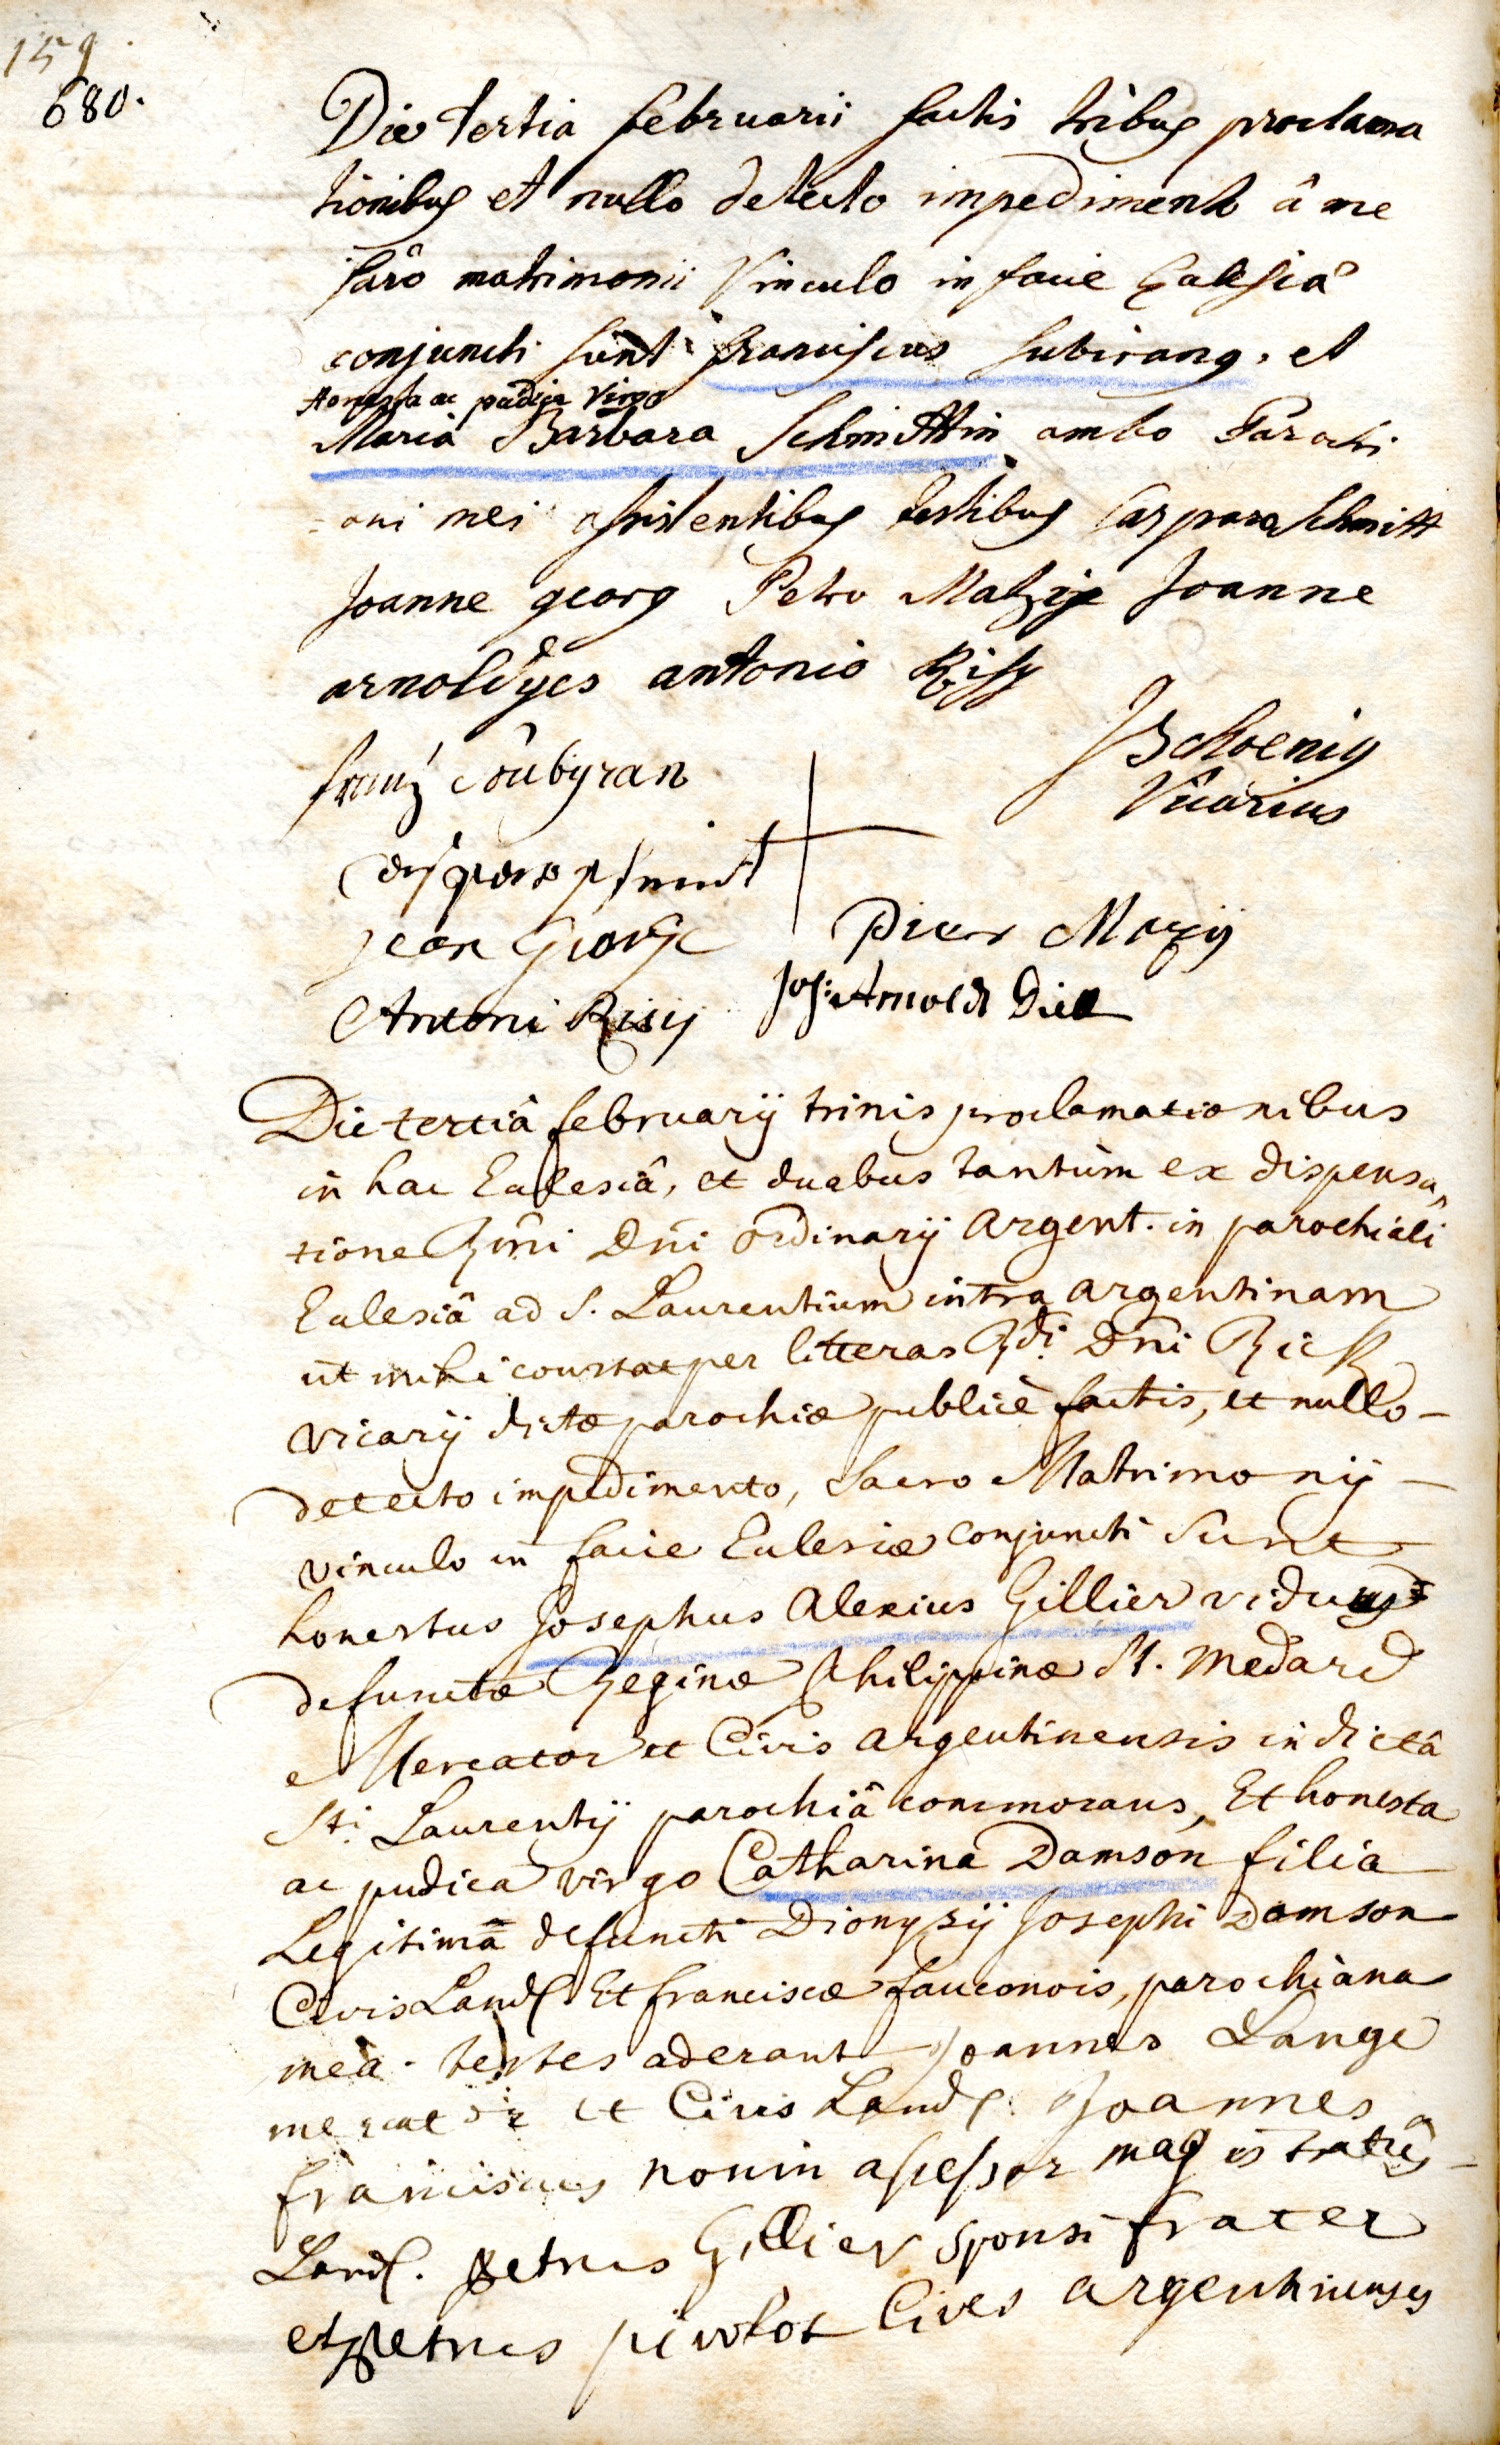 159.
680.
Die tertia februarii factis tribus proclama
tionibus et nullo detecto impedimento â me
sacro matrimonii Vinculo in facie Ecclesiæ
conjuncti sunt franciscus subirang. et
Honesta ac pudica Virgo
Maria Barbara Schmittin ambo Parochi
ani mei assistentibus testibus Casparo Schmitt
Joanne georg Petro Matzije Joanne
arnold antonio Risy
JB Koenig
Vicarius
frantz Soubyran
Jean George
Pieter Mazij
Antoni Risij
Joh: Arnoldt Diel
Die tertiâ february trinis proclamationibus
in hac Ecclesiâ, et duabus tantùm ex dispensa,
tione Rmi Dni Ordinarij argent. in parochiali
Ecclesiâ ad S. Laurentium intra argentinam
ut mihi constat per litteras Rdi Dni Rick
vicarij dictæ parochiæ publicè factis, et nullo-
detecto impedimento, Sacro Matrimonij-
vinculo in facie Ecclesiæ conjuncti Sunt
honestus Josephus Alexius Gillier viduus
defunctæ Reginæ Philippinæ St. Medard
Mercator et Civis argentinensis in dictâ
Sti Laurentij parochiâ commorans, Et honesta
ac pudica virgo Catharina Damson filia
Legitima defuncti Dionysij Josephi Damson
Civis Land. Et franciscæ fauconois, parochiana
mea. testes aderant Joannes Lange
mercator et Civis Land. Joannes
franciscus nonin assessor magistratûs
Land. petrus Gillier sponsi frater
et petrus pivolot Cives argentinenses